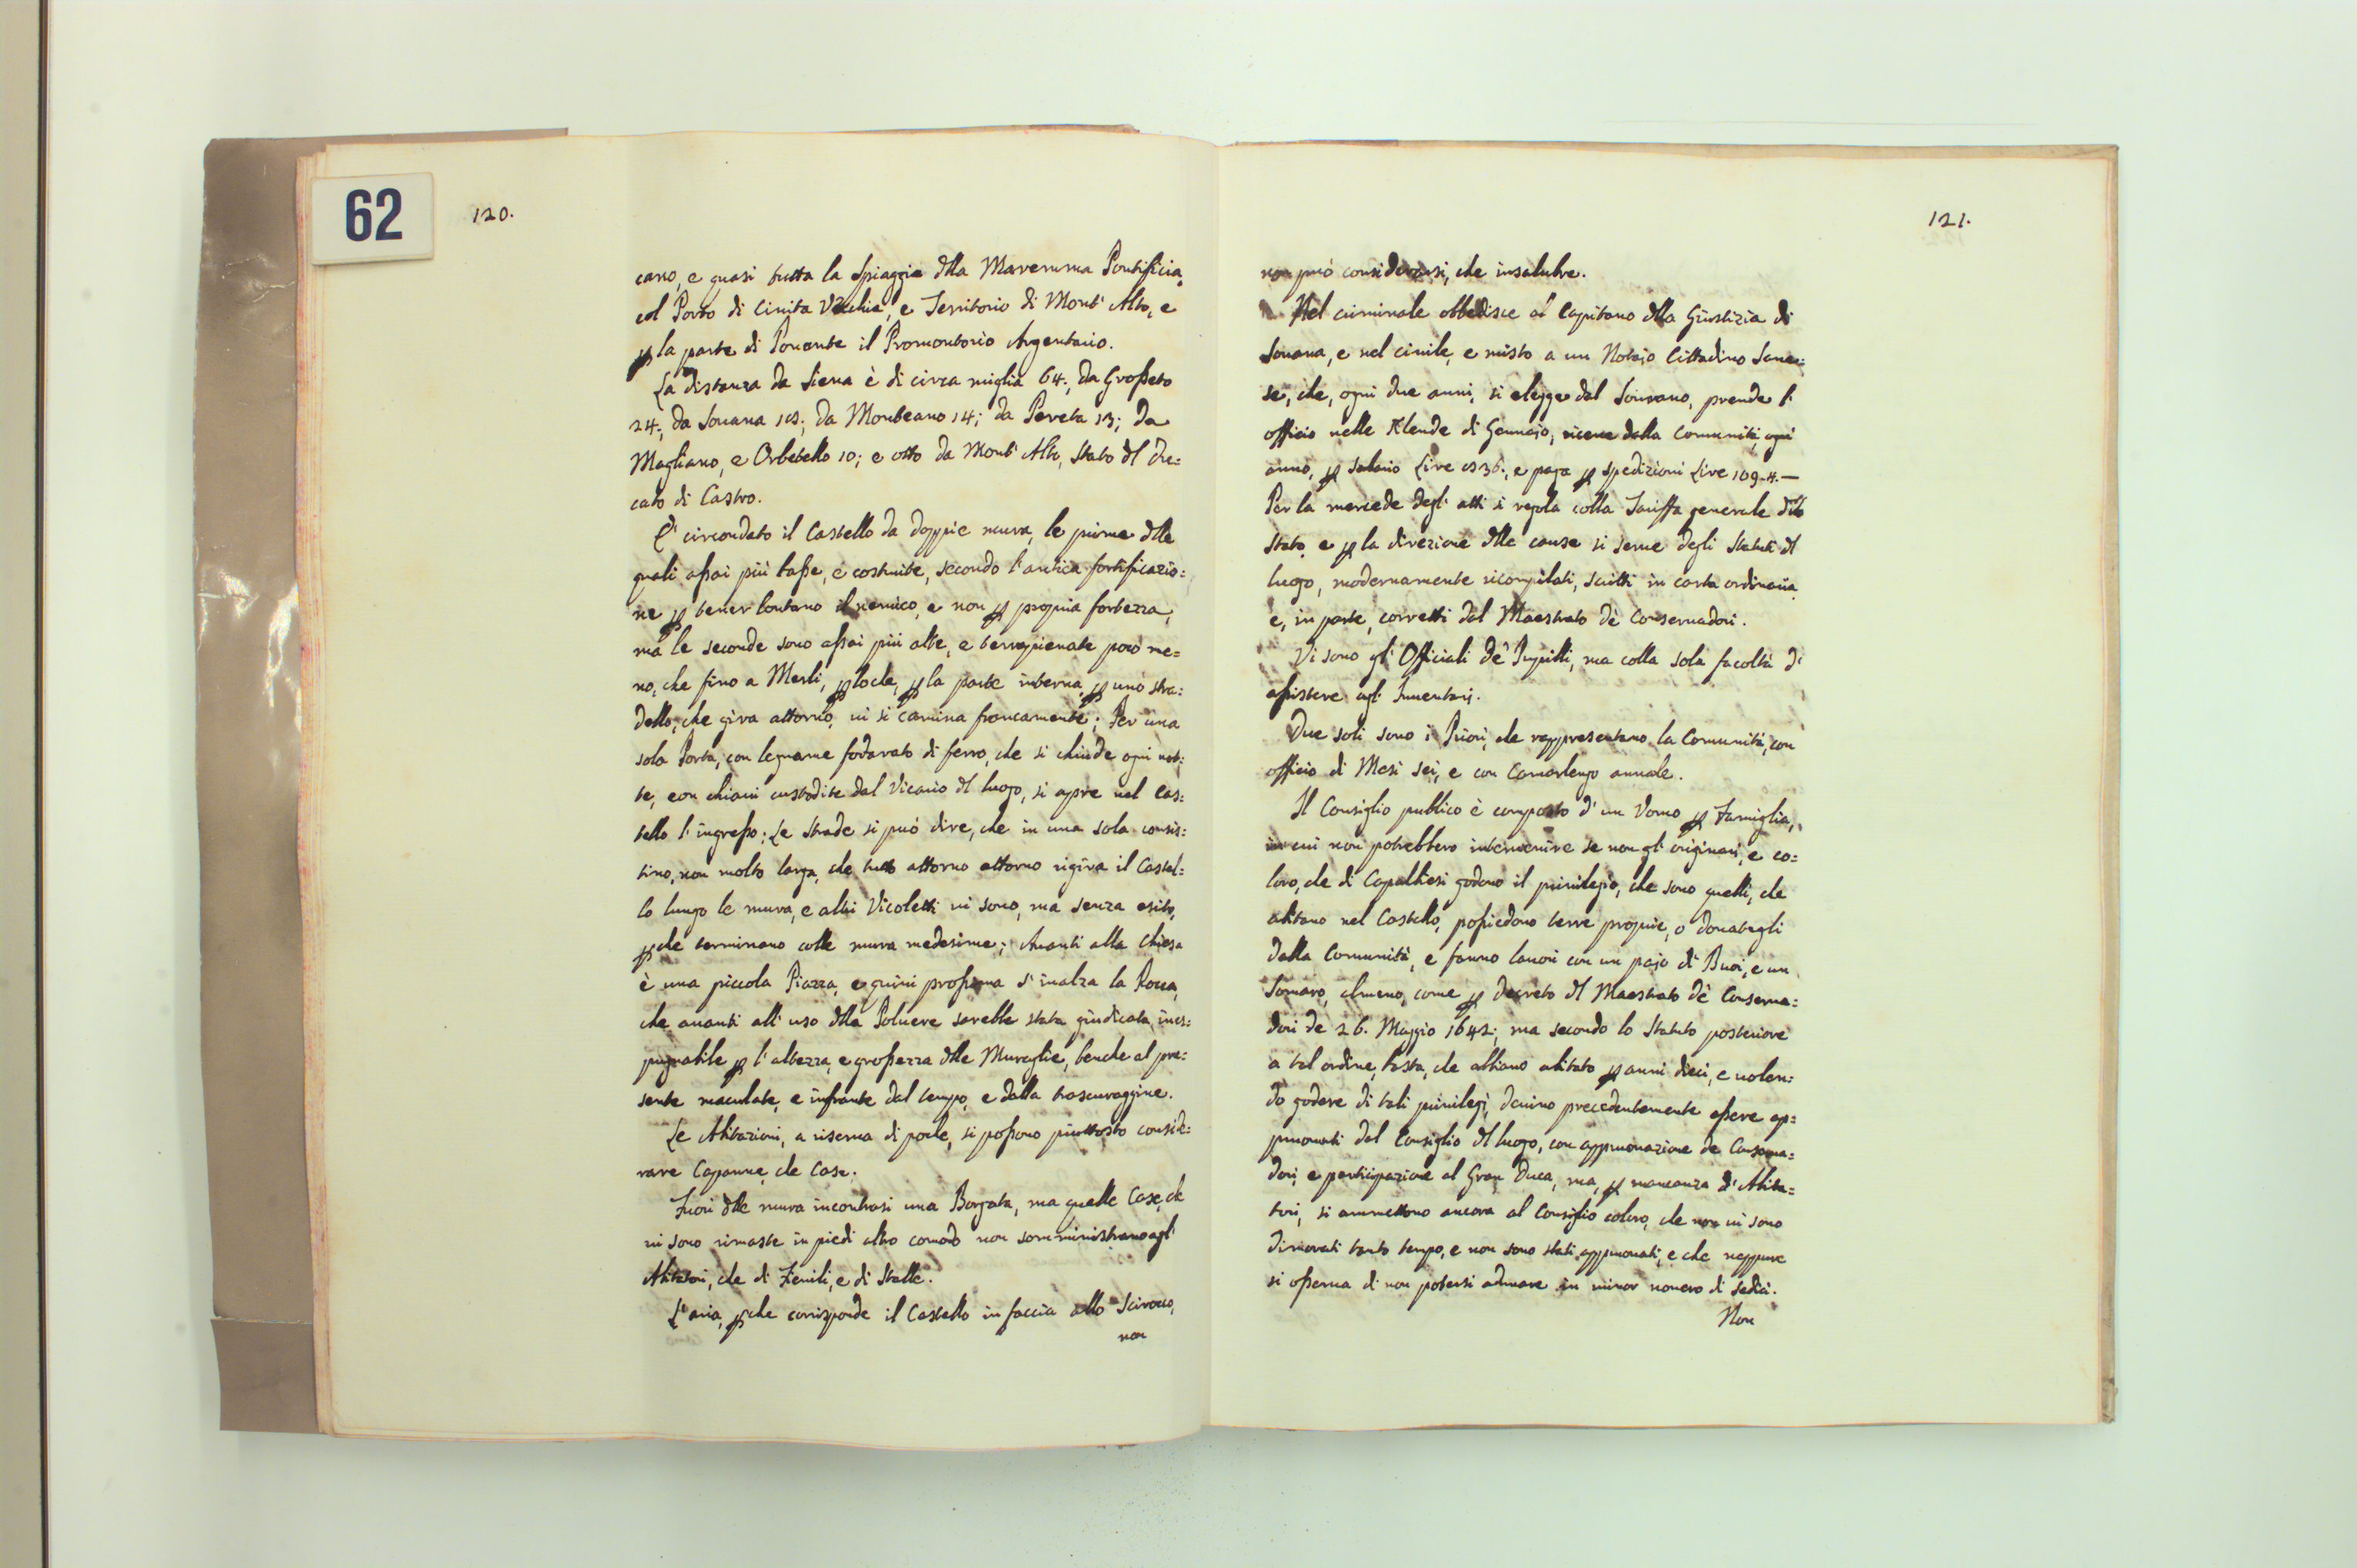 62
120.
cano, e quasi tutta la spiaggia dlla Maremma Pontificia,
col Porto di Civita Vecchia, e Territorio di Mont' Alto, e
p la parte di Ponente il Promontorio Argentario.
La distanza da Siena è di circa miglia 64; da Grosseto
24; da Sovana da Monteano 14; da Pereta 13; da
Magliano, e Orbetello 10; e otto da Mont' Alto, Stato dl Du=
cato di Castro.
E' circondato il Castello da doppie mura, le prime dlle
quali assai più basse, e costruite, secondo l'antica fortificazio=
ne p tener lontano il nemico, e non p propria fortezza,
ma le seconde sono assai più alte, e terrapienate poco me=
no, che fino a Merli, ploche, p la parte interna, p uno stra=
dello, che gira attorno, vi si camina francamente; Per una
sola Porta, con legname foderato di ferro, che si chiude ogni not=
te, con chiavi custodite dal Vicario dl luogo, si apre nel Cas=
tello l'ingresso; Le Strade si può dire, che in una sola consis=
tino, non molto larga, che tutto attorno attorno rigira il Castel=
lo lungo le mura, e altri Vicoletti vi sono, ma senza esito,
pche terminano colle mura medesime; Avanti alla Chiesa
è una piccola Piazza, e quivi prossima s'inalza la Rocca,
che avanti all' uso dlla Polvere sarebbe stata giudicata ines=
pugnabile p l'altezza, e grossezza dlle Muraglie, benche al pre=
sente maculate, e infrante dal tempo, e dalla trascuraggine.
Le Abitazioni, a riserva di poche, si possono piuttosto conside=
rare Capanne, che Case.
Fuori dlle mura incontrasi una Borgata, ma quelle Case, che
vi sono rimaste in piedi altro comodo non somministrano agl'
Abitatori, che di Fienili, e di Stalle.
L'aria, pche corrisponde il Castello in faccia allo Scirocco,
non
121.
non può considerarsi, che insalubre.
Nel criminale obbedisce al Capitano dlla Giustizia di
Sovana, e nel civile, e misto a un Notajo Cittadino Sane=
se, che, ogni due anni, si elegge dal Sovrano, prende l'
officio nelle Klende di Gennajo, riceve dalla Comunità, ogni
anno, p salario Lire e paga p spedizioni Lire 109-4.—
Per la mercede degl' atti si regola colla Tariffa generale dllo
Stato, e p la direzione dlle cause si serve degli Statuti dl
luogo, modernamente ricompilati, scritti in carta ordinaria,
e, in parte, corretti dal Maestrato de' Conservadori.
Vi sono gl' Officiali de' Pupilli, ma colla sola facoltà d'
assistere agl' Inventarj.
Due soli sono i Priori, che rappresentano la Comunità, con
officio di Mesi sei, e con Camarlengo annale.
Il Consiglio publico è composto d'un Uomo p Famiglia,
in cui non potrebbero intervenire se non gl' originari, e co=
loro, che di Capalbiesi godono il privilegio, che sono quelli, che
abitano nel Castello, possiedono terre proprie, o donategli
dalla Comunità, e fanno lavori con un pajo di Buoi, e un
Somaro, almeno, come p decreto dl Maestrato de' Conserva=
dori de' 26. Maggio ma secondo lo Statuto posteriore
a tal ordine, basta, che abbiano abitato p anni dieci, e volen=
do godere di tali privilegj, devino precedentemente essere ap=
pruovati dal Consiglio dl luogo, con appruovazione de' Conserva=
dori, e participazione al Gran Duca, ma, p mancanza d' Abita=
tori, si ammettono ancora al Consiglio coloro, che non vi sono
dimorati tanto tempo, e non sono stati appruovati, e che neppure
si osserva di non potersi adunare in minor novero di sedici.
Non